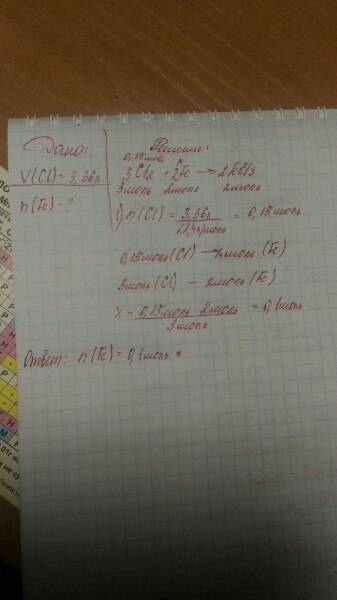 Дано:
V(Cl) = 3,36л
n(Fe) - ?
Решение:
0,15моль x
3Cl₂ + 2Fe → 2FeCl₃
3моль 2моль 2моль
1) n(Cl) = 3,36л / 22,4л/моль = 0,15моль
0,15моль (Cl) – x моль (Fe)
3моль (Cl) – 2моль (Fe)
x = 0,15моль · 2моль / 3моль = 0,1моль
Ответ: n(Fe) = 0,1моль.